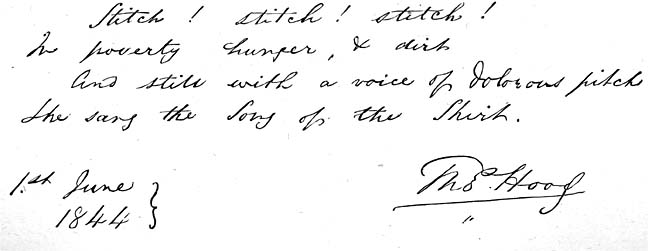 Stitch! stitch! stitch!
In poverty hunger, & dirt
And still with a voice of dolorous pitch
She sang the Song of the Shirt.
1.st June
1844
Thos. Hood